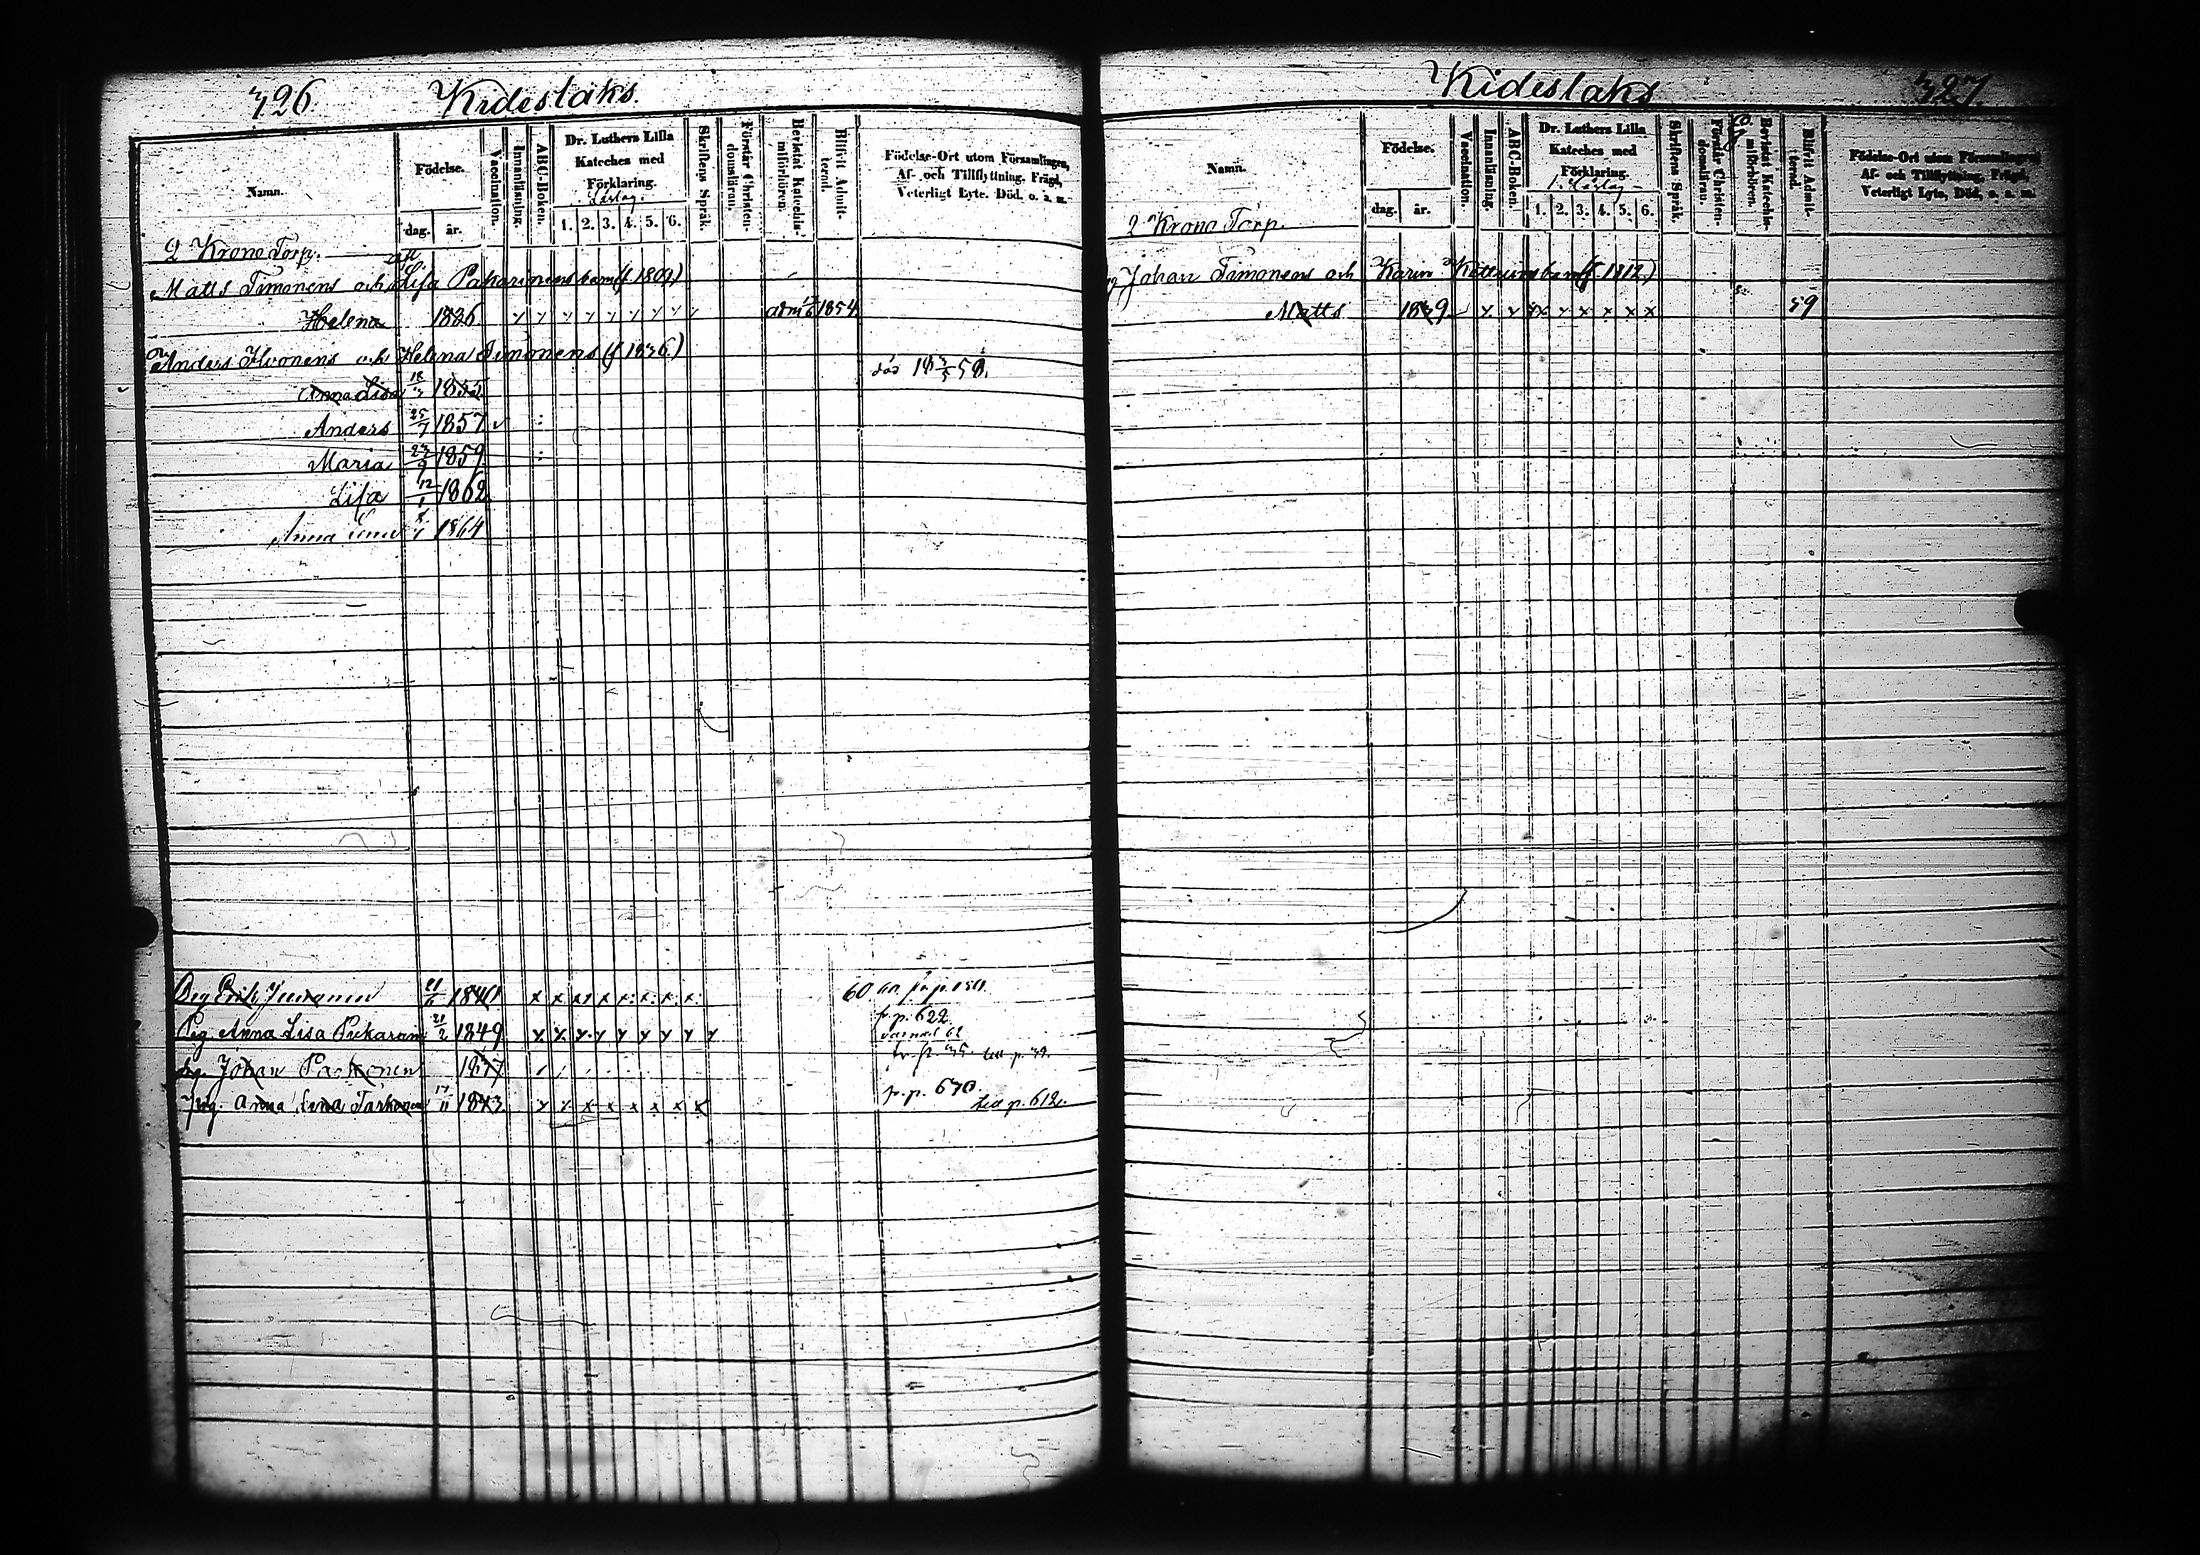 326 Kideslaks.
Namn. Födelse. dag. år. Vaccination. Innanläsning. ABC-Boken. Dr. Luthers Lilla Kateches med Förklaring. 1. 2. 3. 4. 5. 6. Skriftens Språk. Förstår Christendomsläran. Bevistat Katechismiförhören. Blifvit Admitterad. Födelse-Ort utom Församlingen, Af- och Tillflyttning. Frägd, Veterligt Lyte. Död. o. a. m.
2 Krono Torp.
Matts Timonens och Lisa Pakarinens barn (f. 1809)
Helena 1836 adm 1854
Anders Ilvonens och Helena Timonens (f 1836.)
Anna Lisa 1855 död 18 58.
Anders 25/7 1857
Maria 27/9 1859
Lisa 12/1 1862
Anna 1864
Erik 21/6 1840 60.
Pig Anna Lisa 21/2 1849 fr. p. 622
Johan
pig. Anna Lena 17/11 1843 fr. p. 670. till p. 612.
Kideslaks 327.
Namn. Födelse. dag. år. Vaccination. Innanläsning. ABC-Boken. Dr. Luthers Lilla Kateches med Förklaring. 1. 2. 3. 4. 5. 6. Skriftens Språk. Förstår Christendomsläran. Bevistat Katechismiförhören. Blifvit Admitterad. Födelse-Ort utom Församlingen, Af- och Tillflyttning, Frägd, Veterligt Lyte, Död, o. a. m.
2 Krono Torp.
Johan Timonens och Karin barn (f. 1812)
Matts 1839 59